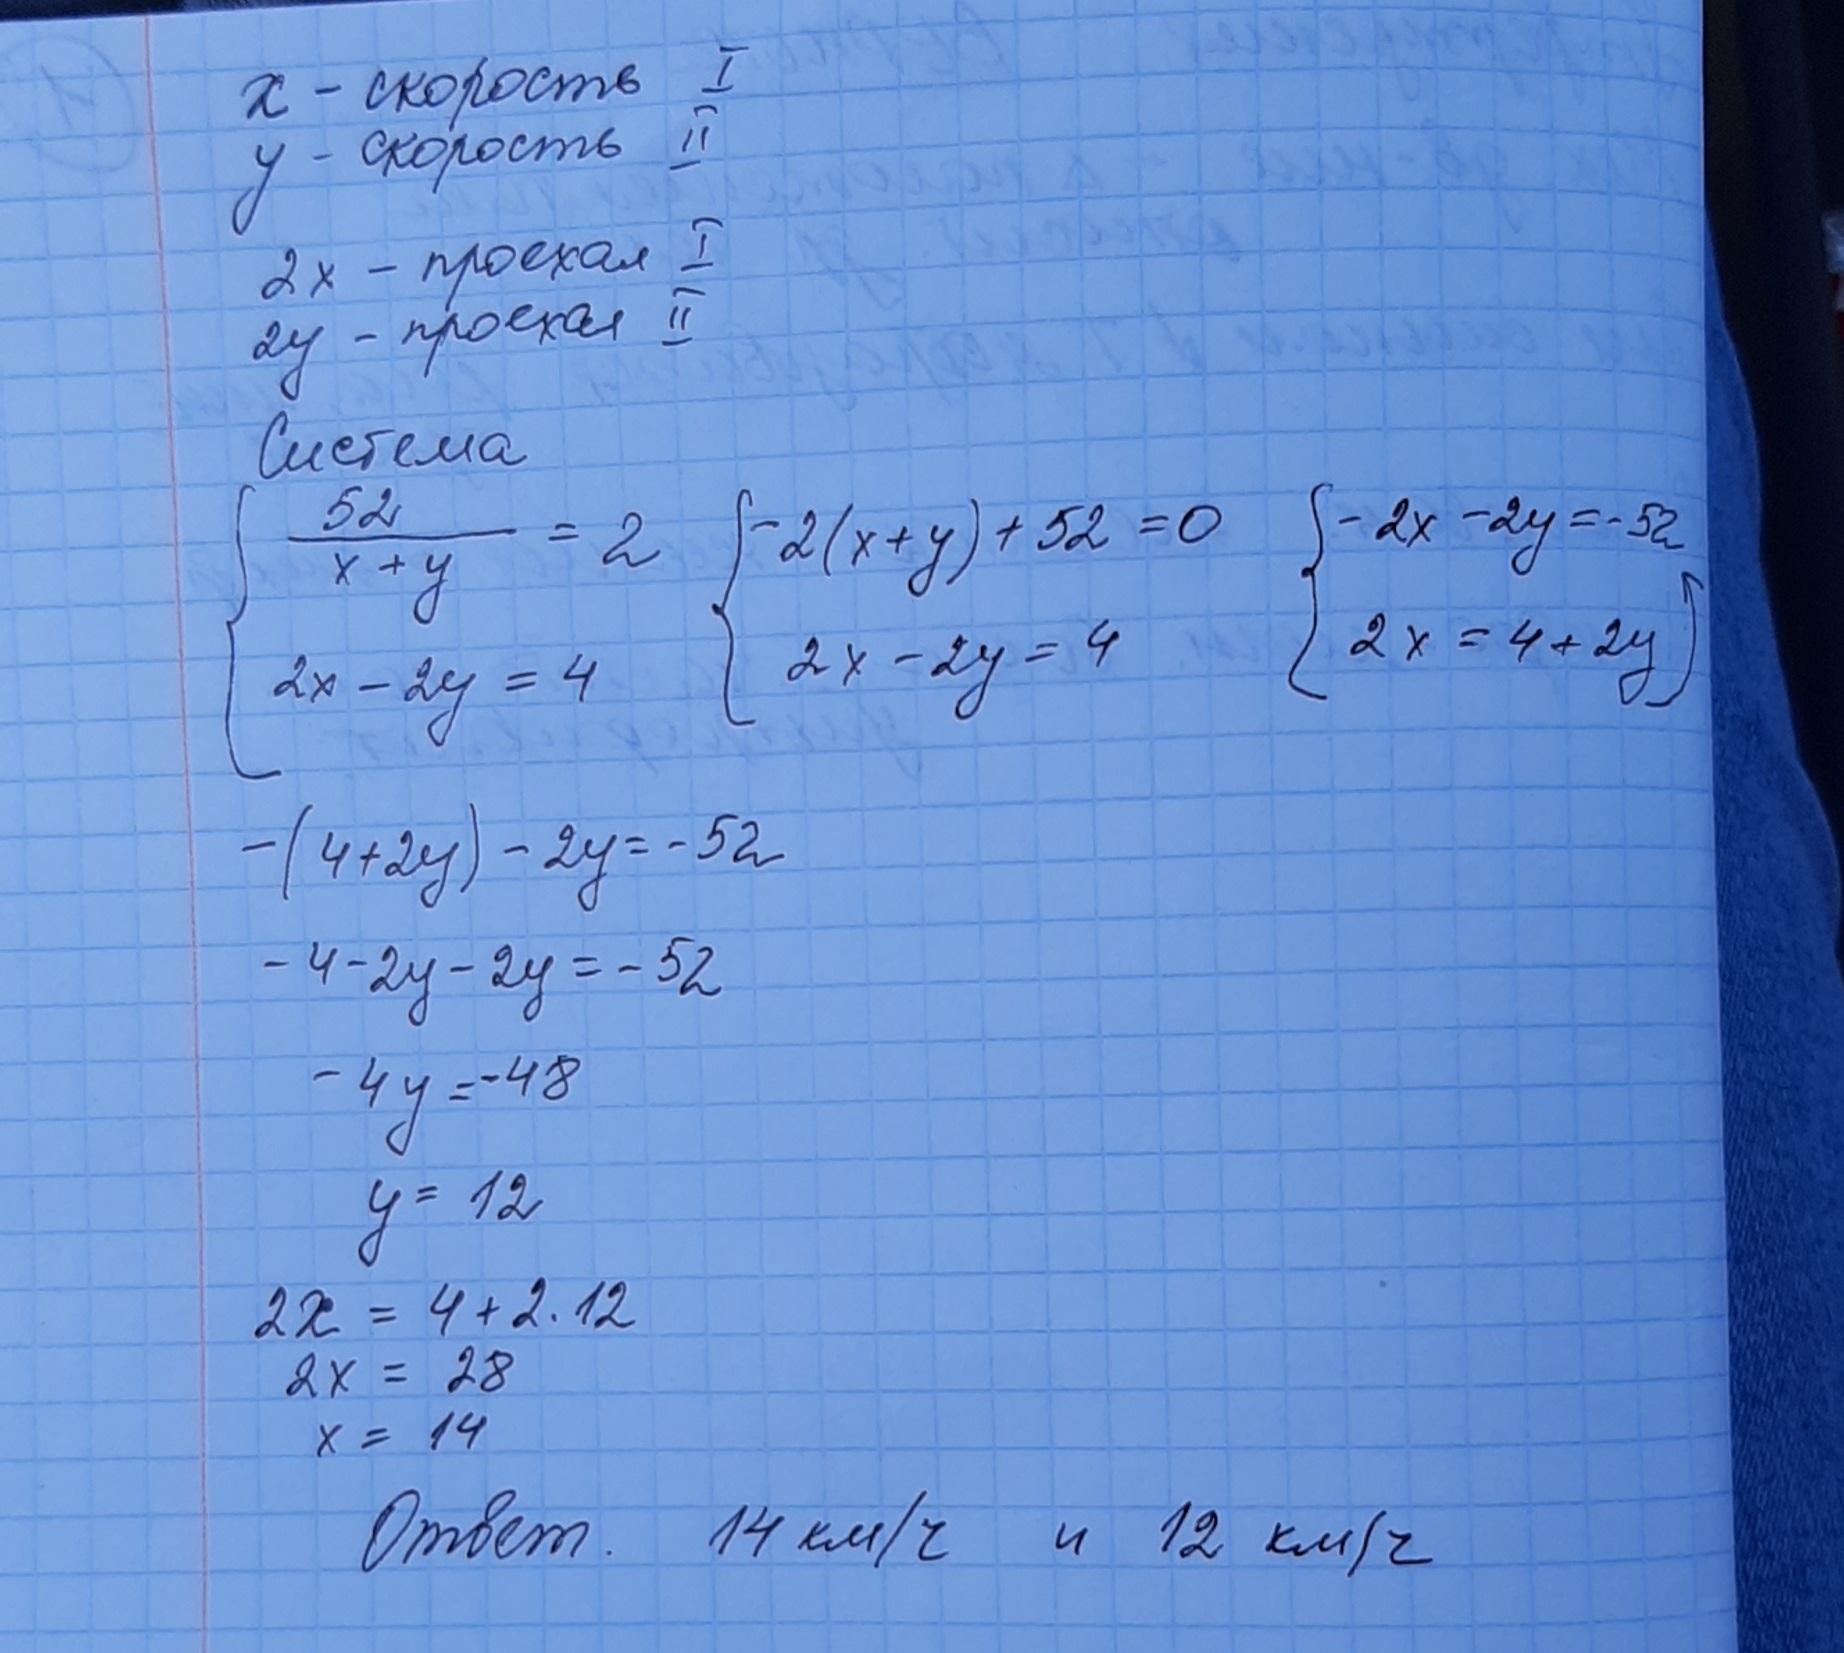 x - скорость I
y - скорость II
2x - проехал I
2y - проехал II
Система
52 / (x + y) = 2   -2(x+y) + 52 = 0   -2x - 2y = -52
2x - 2y = 4   2x - 2y = 4   2x = 4 + 2y
-(4+2y) - 2y = -52
-4 - 2y - 2y = -52
-4y = -48
y = 12
2x = 4 + 2·12
2x = 28
x = 14
Ответ. 14 км/ч и 12 км/ч